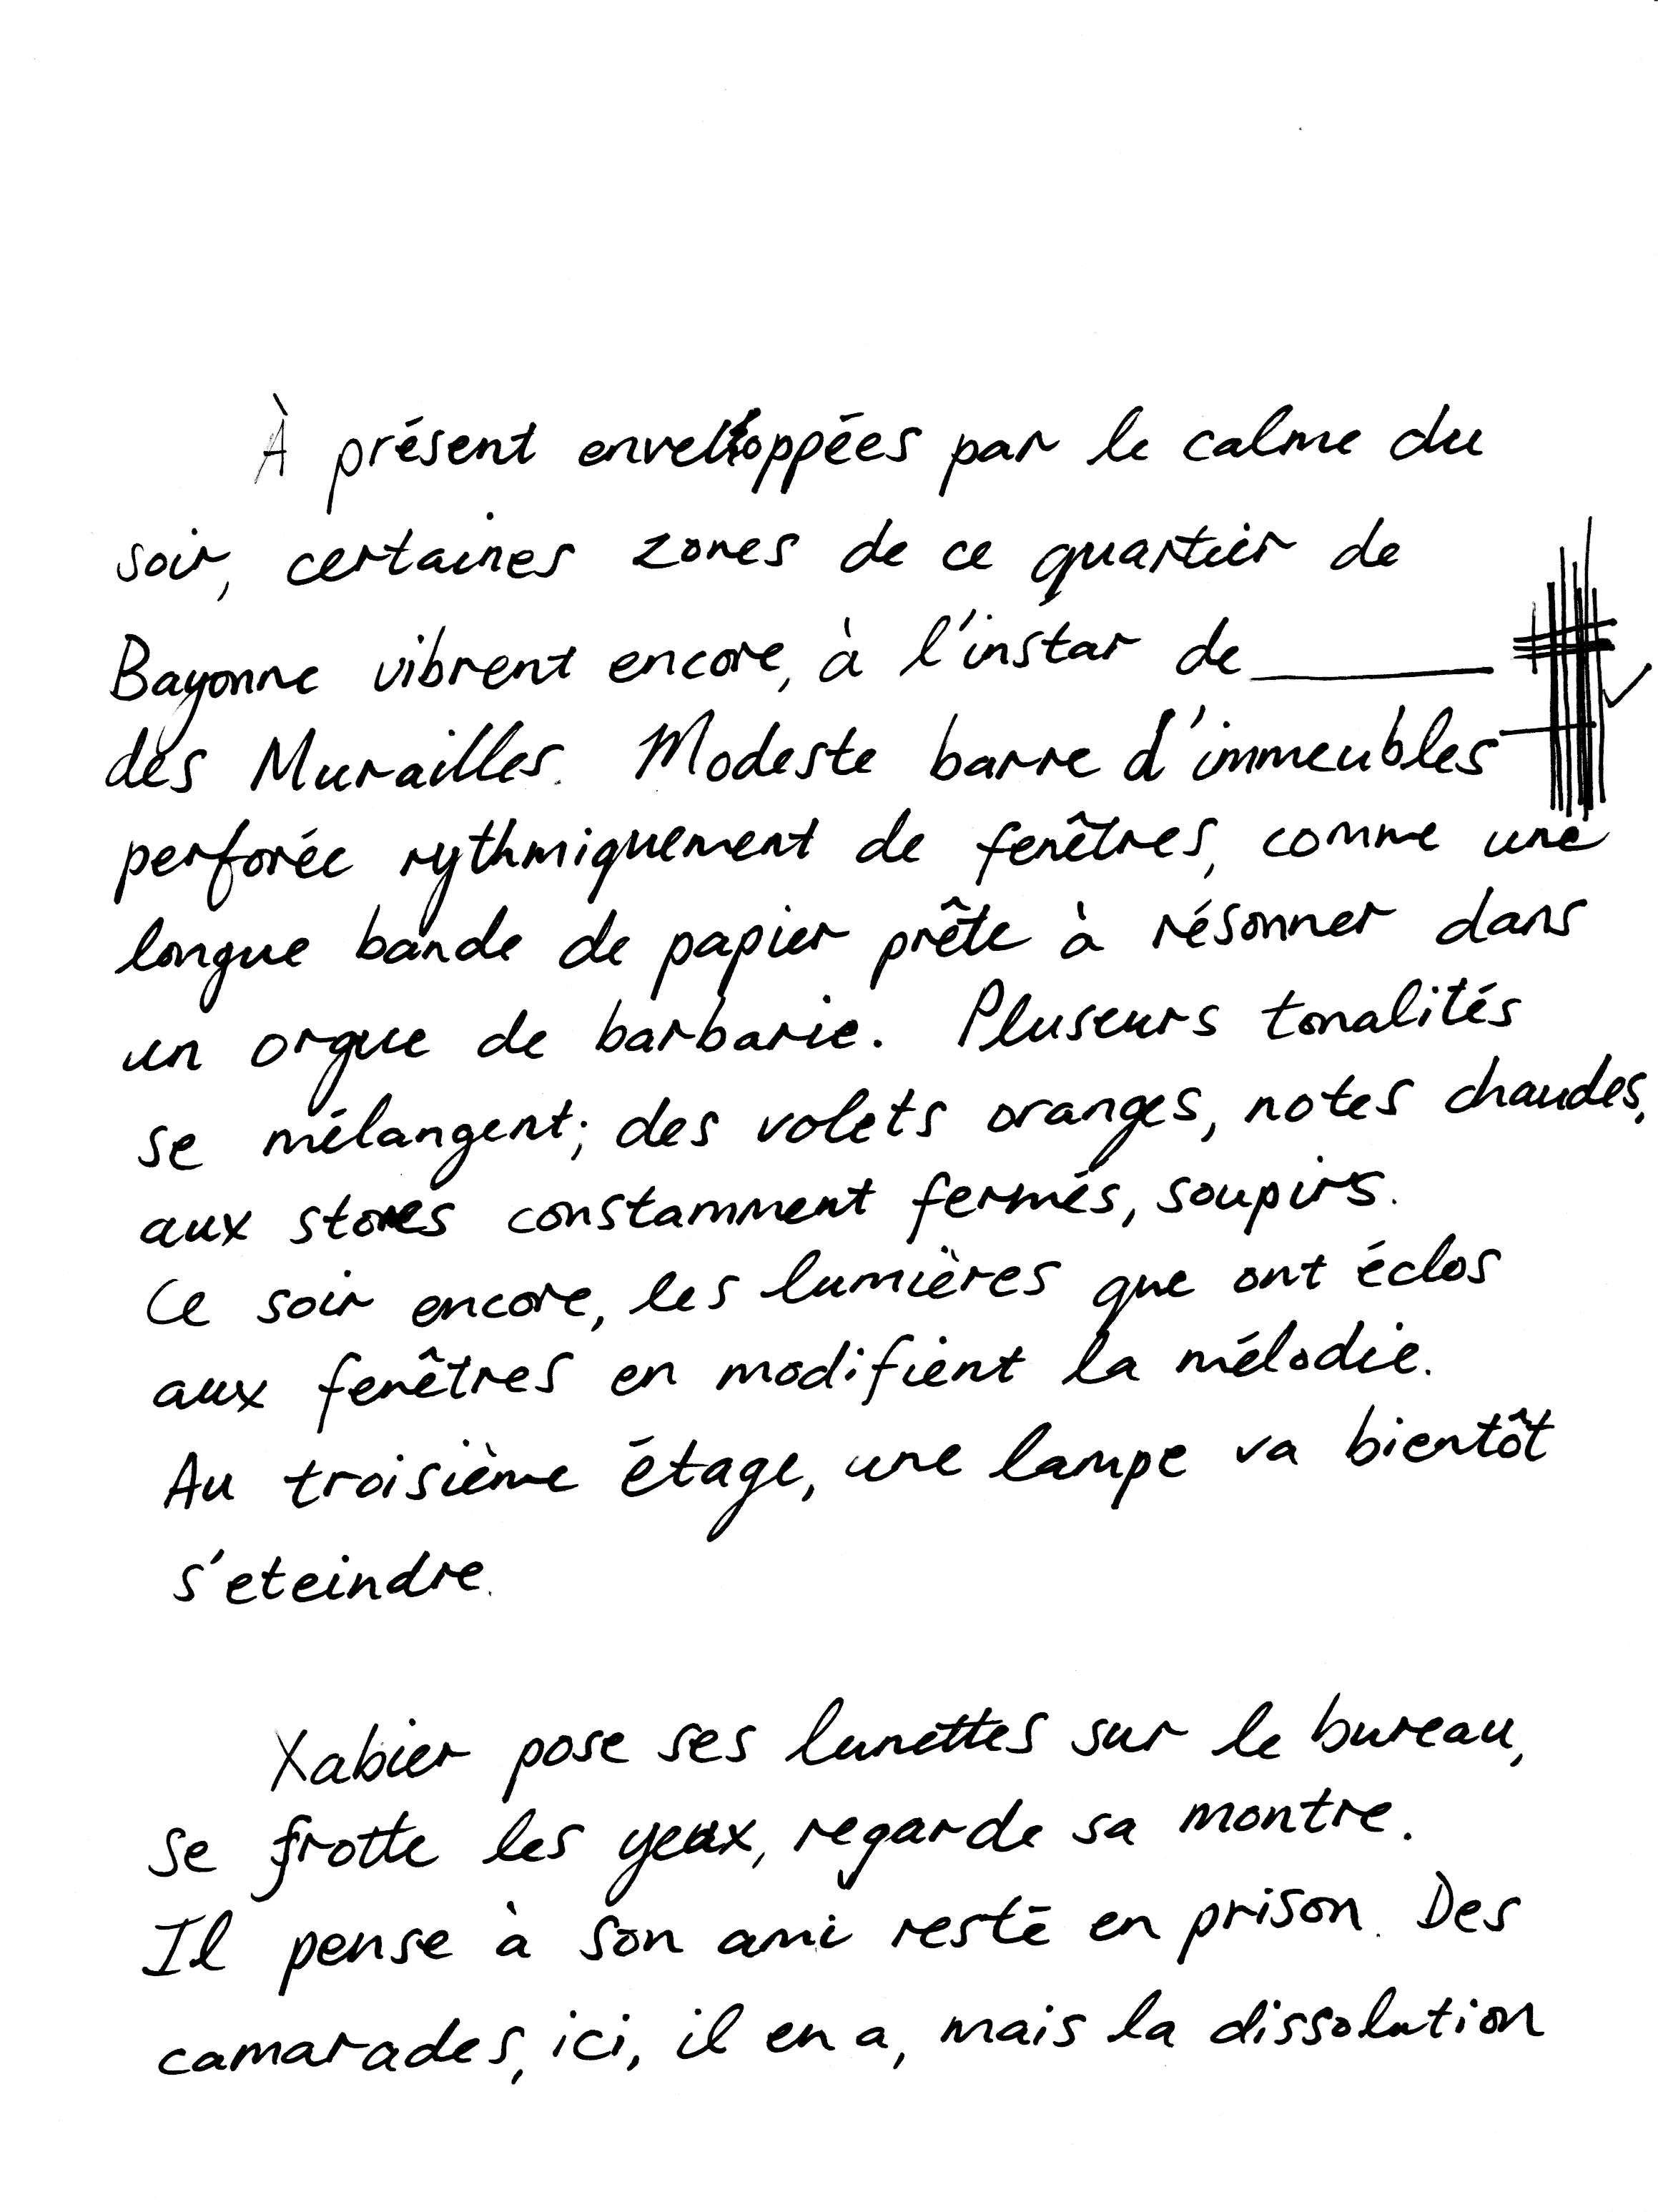 À présent enveloppées par le calme du
soir, certaines zones de ce quartier de
Bayonne vibrent encore, à l'instar de
des Murailles. Modeste barre d'immeubles
perforée rythmiquement de fenêtres, comme une
longue bande de papier prête à résonner dans
un orgue de barbarie. Pluseurs tonalités
se mélangent; des volets oranges, notes chaudes,
aux stores constamment fermés, soupirs.
Ce soir encore, les lumières que ont éclos
aux fenêtres en modifient la mélodie.
Au troisième étage, une lampe va bientôt
s'eteindre.
Xabier pose ses lunettes sur le bureau,
se frotte les yeux, regarde sa montre.
Il pense à son ami resté en prison. Des
camarades, ici, il en a, mais la dissolution